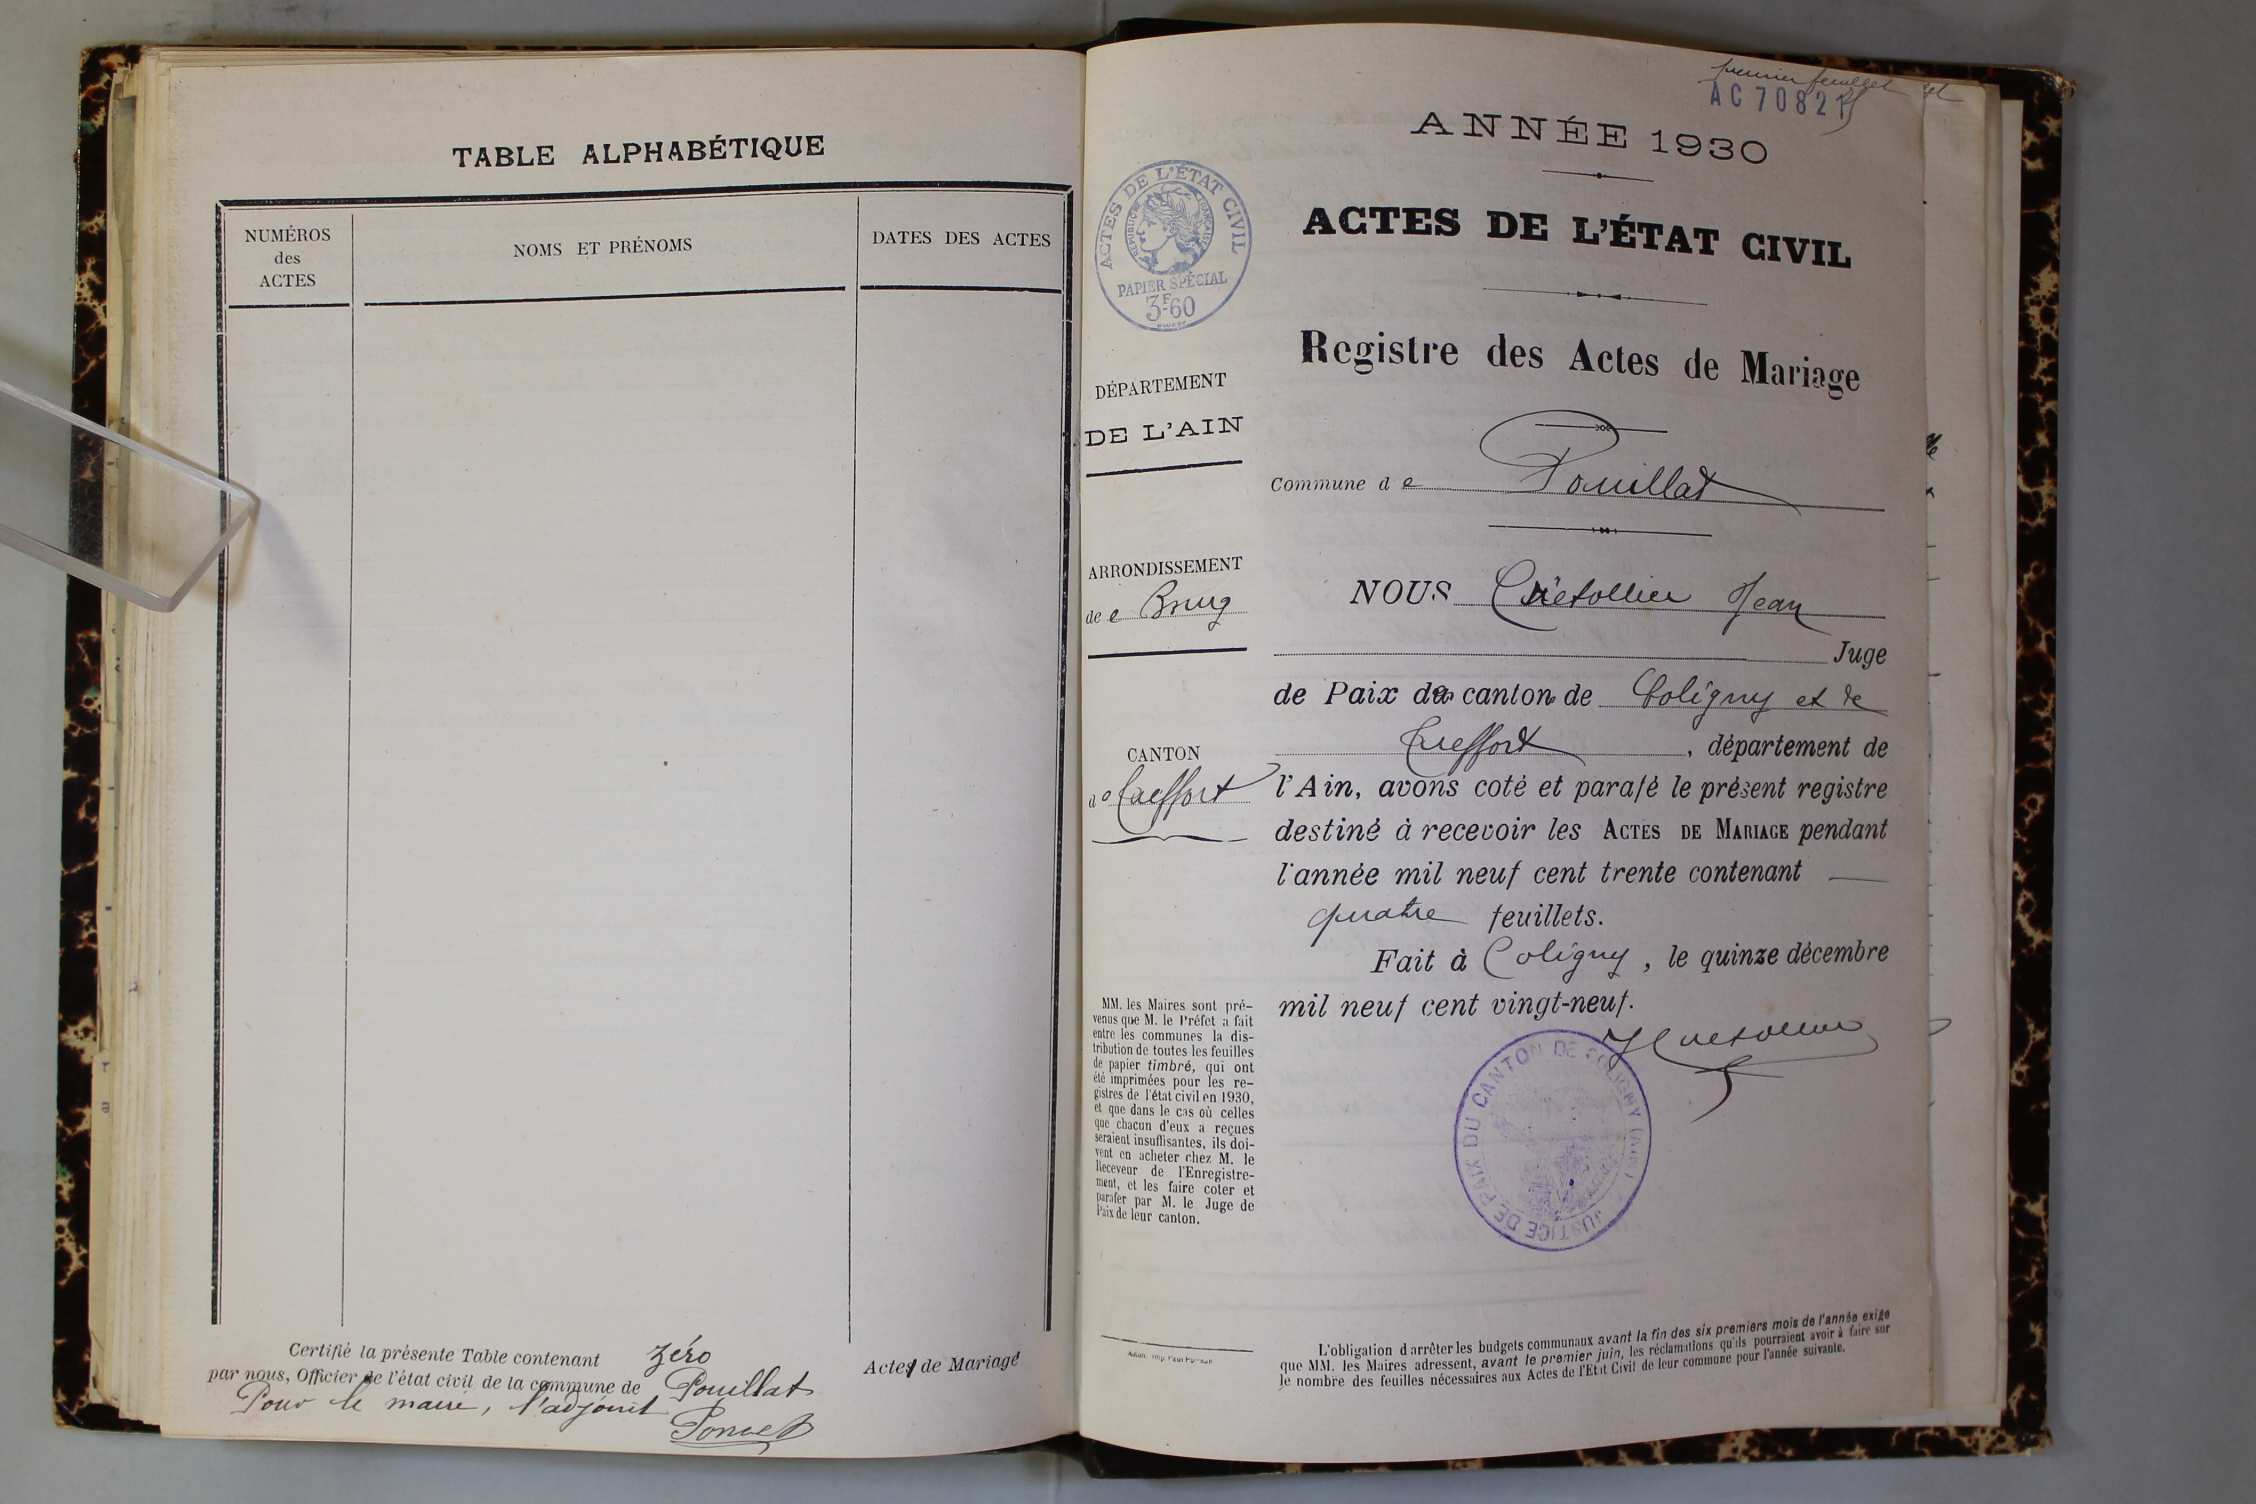 TABLE ALPHABÉTIQUE
NUMÉROS
des
ACTES
NOMS ET PRÉNOMS
DATES DES ACTES
Certifié la présente Table contenant zéro Actes de Mariage
par nous, Officier de l'état civil de la commune de Pouillat
Pour le maire, l'adjoint
Poncet
premier feuillet
AC 70821
ANNÉE 1930
ACTES DE L'ÉTAT CIVIL
RÉPUBLIQUE FRANÇAISE
PAPIER SPÉCIAL
3F60
ACTES DE L'ÉTAT CIVIL
Registre des Actes de Mariage
DÉPARTEMENT
DE L'AIN
Commune de Pouillat
ARRONDISSEMENT
de Bourg
CANTON
de Treffort
NOUS Jean
Juge
de Paix des cantons de Coligny et de
Treffort, département de
l'Ain, avons coté et parafé le présent registre
destiné à recevoir les ACTES DE MARIAGE pendant
l'année mil neuf cent trente contenant
quatre feuillets.
Fait à Coligny, le quinze décembre
mil neuf cent vingt-neuf.
JUSTICE DE PAIX DU CANTON DE COLIGNY (AIN)
MM. les Maires sont pré-
venus que M. le Préfet a fait
entre les communes la dis-
tribution de toutes les feuilles
de papier timbré, qui ont
été imprimées pour les re-
gistres de l'état civil en 1930,
et que dans le cas où celles
que chacun d'eux a reçues
seraient insuffisantes, ils doi-
vent en acheter chez M. le
Receveur de l'Enregistre-
ment, et les faire coter et
parafer par M. le Juge de
Paix de leur canton.
L'obligation d'arrêter les budgets communaux avant la fin des six premiers mois de l'année exige
que MM. les Maires adressent, avant le premier juin, les réclamations qu'ils pourraient avoir à faire sur
le nombre des feuilles nécessaires aux Actes de l'Etat Civil de leur commune pour l'année suivante.